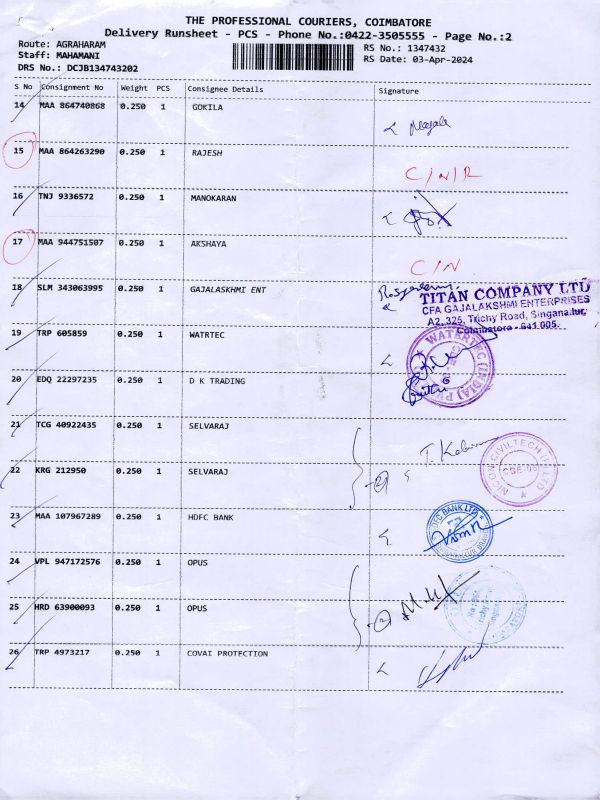 THE PROFESSIONAL COURIERS, COIMBATORE
Delivery Runsheet - PCS - Phone No.:0422-3505555 - Page No.:2
Route: AGRAHARAM
RS No.: 1347432
Staff: MAHAMANI
RS Date: 03-Apr-2024
DRS No.: DCJB134743202
S No Consignment No Weight PCS Consignee Details Signature
14 MAA 864740868 0.250 1 GOKILA
15 MAA 864263290 0.250 1 RAJESH
C/N/R
16 TNJ 9336572 0.250 1 MANOKARAN
17 MAA 944751507 0.250 1 AKSHAYA
C/N
18 SLM 343063995 0.250 1 GAJALASKHMI ENT
TITAN COMPANY LTD
CFA GAJALAKSHMI ENTERPRISES
A2, 325, Trichy Road, Singanallur,
Coimbatore - 641 005.
19 TRP 605859 0.250 1 WATRTEC
WATERTEC (INDIA)
20 EDQ 22297235 0.250 1 D K TRADING
21 TCG 40922435 0.250 1 SELVARAJ
22 KRG 212950 0.250 1 SELVARAJ
CIVILTECH
CBE-05
23 MAA 107967289 0.250 1 HDFC BANK
BANK LTD
24 VPL 947172576 0.250 1 OPUS
25 HRD 63900093 0.250 1 OPUS
26 TRP 4973217 0.250 1 COVAI PROTECTION